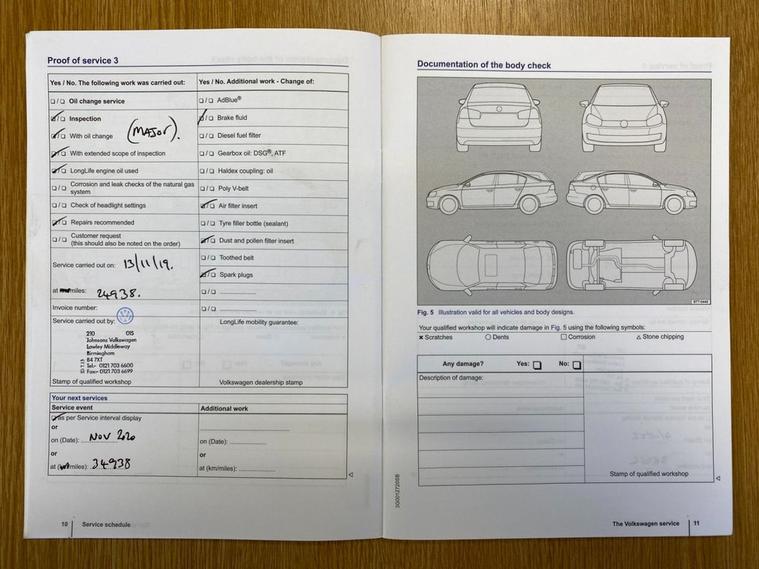 Proof of service 3
Yes / No. The following work was carried out:
Oil change service
Inspection
With oil change
(MAJOR).
With extended scope of inspection
LongLife engine oil used
Corrosion and leak checks of the natural gas
system
Check of headlight settings
Repairs recommended
Customer request
(this should also be noted on the order)
Service carried out on: 13/11/19.
at miles: 24938.
Invoice number:
Service carried out by:
210 015
Johnsons Volkswagen
Lawley Middleway
Birmingham
B4 7XT
Tel:- 0121 703 6600
Fax:- 0121 703 6699
Stamp of qualified workshop
Yes / No. Additional work - Change of:
AdBlue®
Brake fluid
Diesel fuel filter
Gearbox oil: DSG®, ATF
Haldex coupling: oil
Poly V-belt
Air filter insert
Tyre filler bottle (sealant)
Dust and pollen filter insert
Toothed belt
Spark plugs
LongLife mobility guarantee:
Volkswagen dealership stamp
Your next services
Service event
as per Service interval display
or
on (Date): NOV 220
or
at (miles): 34938
Additional work
on (Date):
or
at (km/miles):
10 Service schedule
Documentation of the body check
Fig. 5 Illustration valid for all vehicles and body designs.
Your qualified workshop will indicate damage in Fig. 5 using the following symbols:
Scratches Dents Corrosion Stone chipping
Any damage? Yes: No:
Description of damage:
Stamp of qualified workshop
The Volkswagen service 11